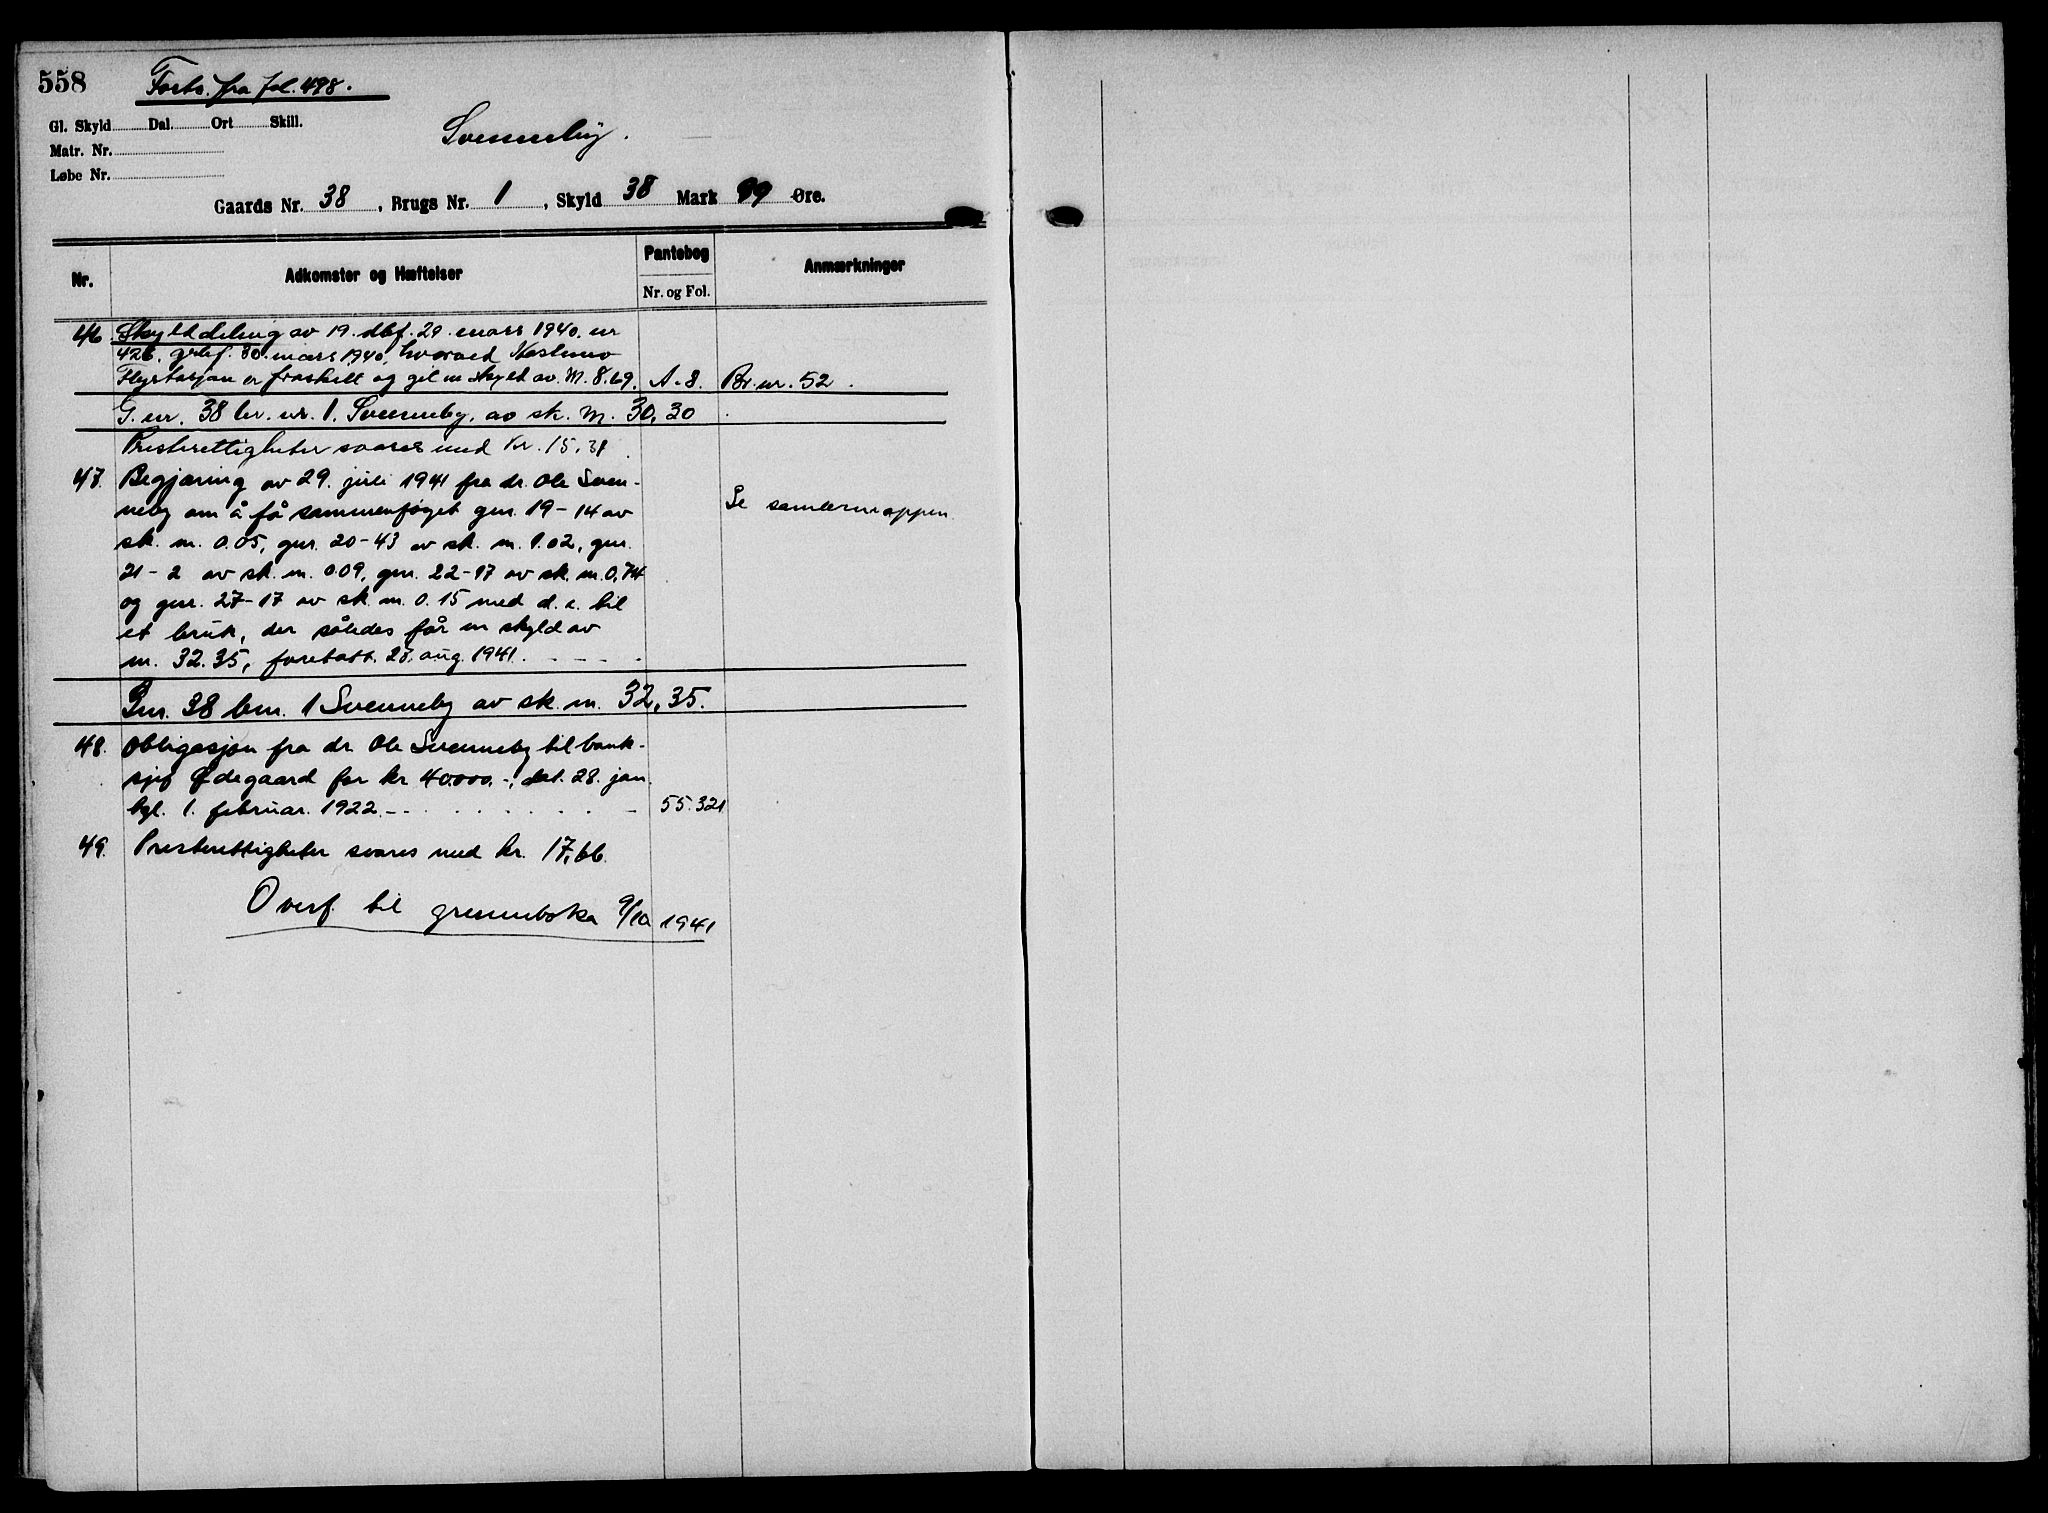 558
Forts. fra fol. 498.
Gl. Skyld Dal. Ort Skill.
Svenneby.
Matr. Nr.
Løbe Nr.
Gaards Nr. 38, Brugs Nr. 1, Skyld 38 Mark 99 Øre.
Nr. Adkomster og Hæftelser Pantebog Anmærkninger
Nr. og Fol.
46. Skylddeling av 19. dbf. 29. mars 1940. nr
426, grbf. 30. mars 1940, hvorved
Flystasjon er fraskilt og git en skyld av. M. 8.69. A-8. Br. nr. 52.
G. nr. 38 br. nr. 1. Svenneby, av sk. M. 30,30
Presterettigheter svares med Kr. 15,38.
47. Begjæring av 29. juli 1941 fra dr. Ole Sven-
neby om å få sammenføyet gnr. 19-14 av Se samlemappen.
sk. m. 0.05, gnr. 20-43 av sk. m. 1.02, gnr.
21-2 av sk. m. 0.09, gnr. 22-17 av sk. m. 0,74
og gnr. 27-17 av sk. m. 0.15 med d. e. til
et bruk, der således får en skyld av
m. 32.35, foretatt. 28. aug. 1941.
Gnr. 38 bnr. 1 Svenneby av sk. m. 32,35.
48. Obligasjon fra dr. Ole Svenneby til bank-
sjef Ødegaard for kr 40.000.-, dat. 28. jan.
tgl. 1. februar. 1922. 55.321
49. Presterettigheter svares med kr. 17,66.
Overf. til grunnboka 9/10 1941